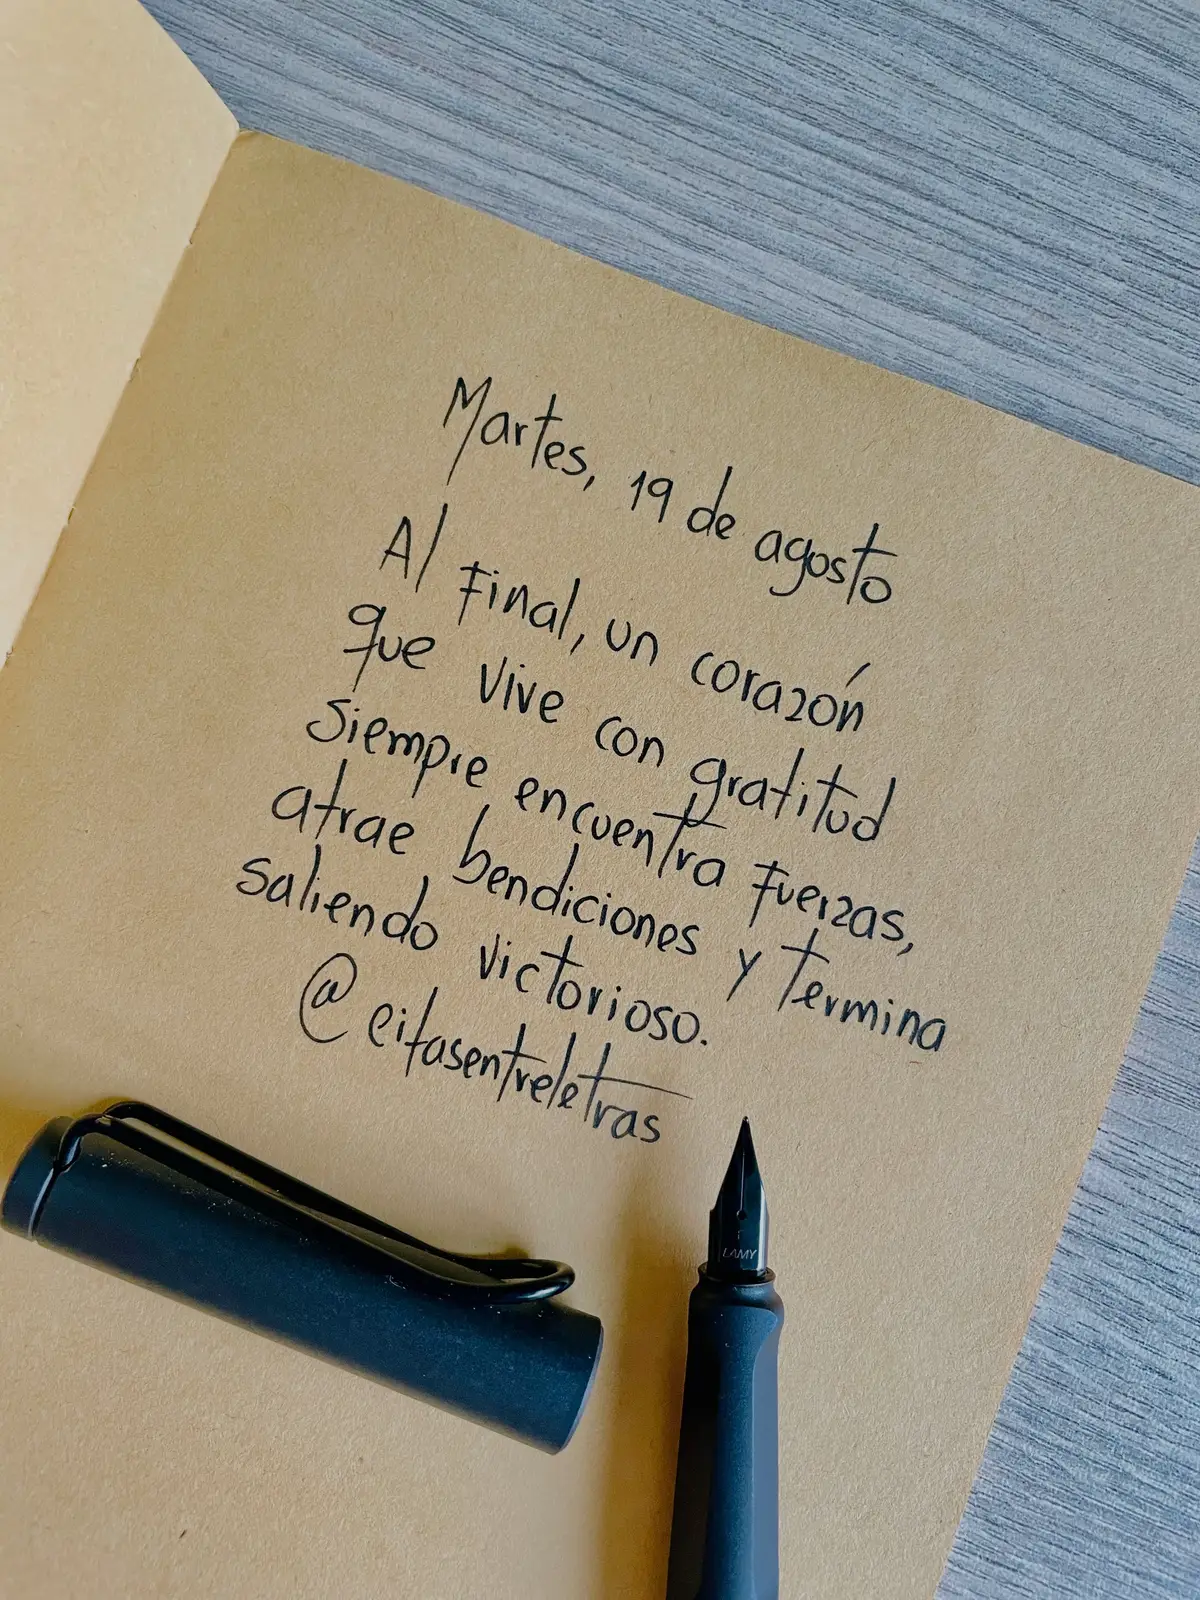 Martes, 19 de agosto
Al final, un corazón
que vive con gratitud
siempre encuentra fuerzas,
atrae bendiciones y termina
saliendo victorioso.
@citasentreletras
LAMY